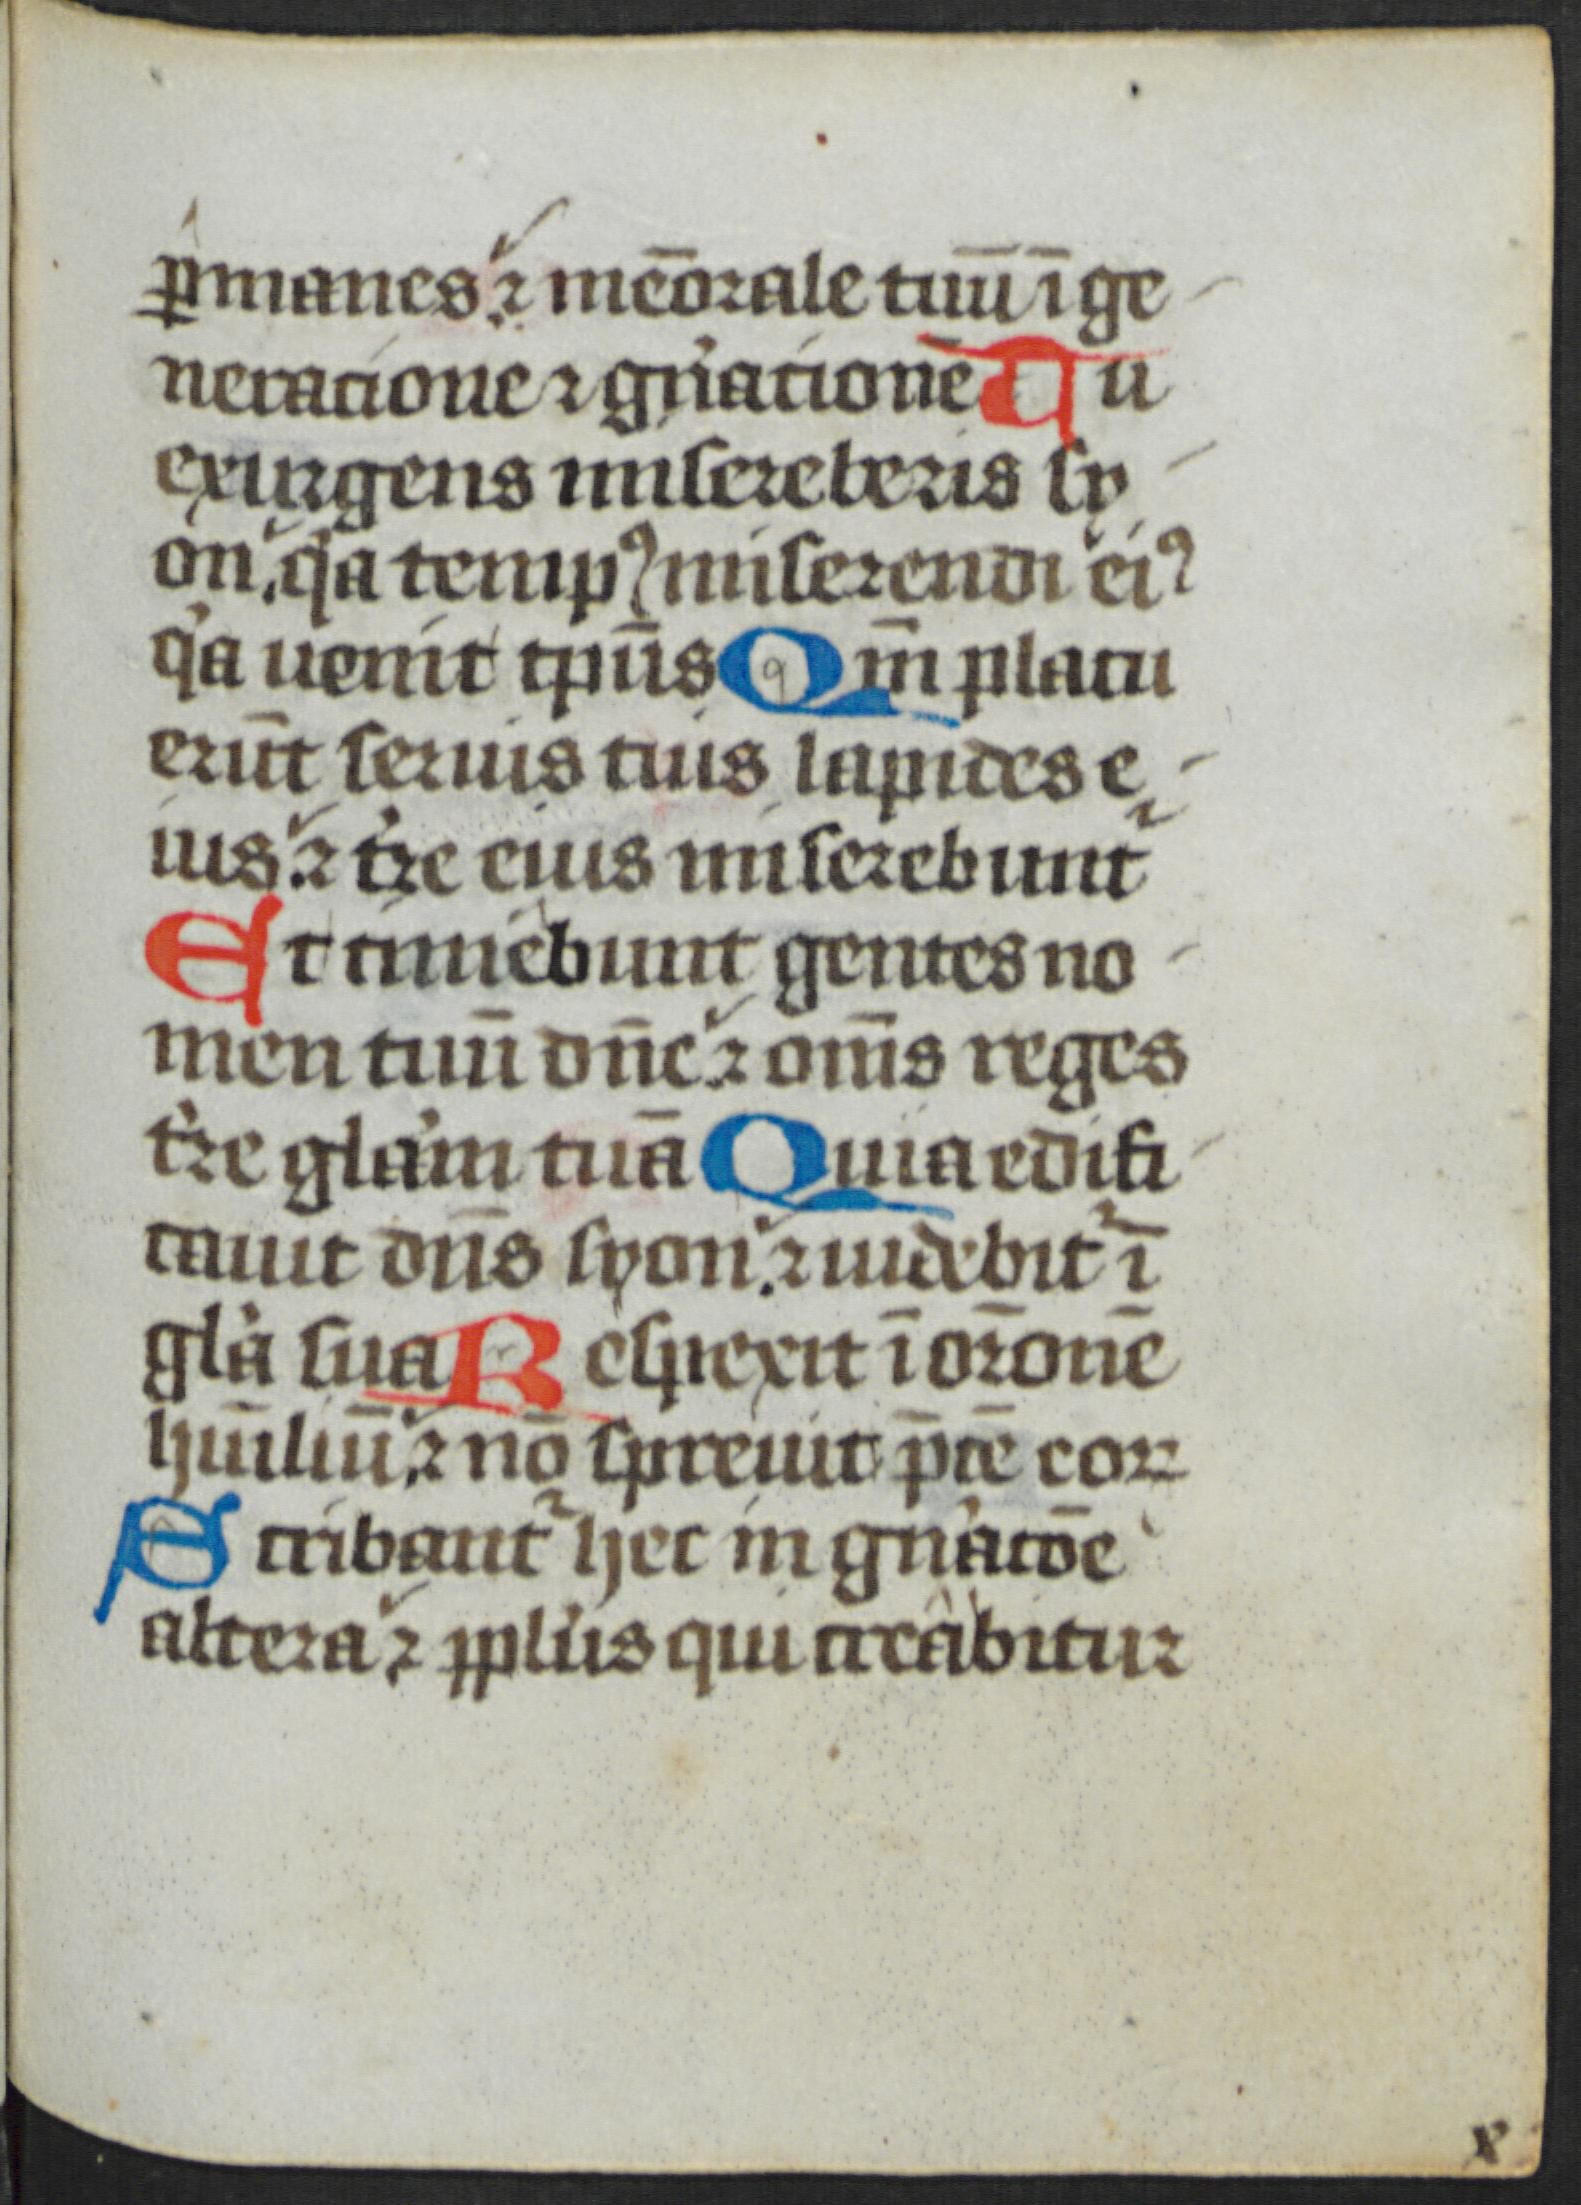 ꝑmanes ⁊ mēorale tuū ī ge
neracione ⁊ gn̾acionē Tu
exurgens misereberis sy
on. q̾a tempꝰ miserendi eiꝰ
q̾a uenit tp̄us Qm̄ placu
erūt seruis tuis lapides e
ius. ⁊ tr̾e eius miserebunt᷑
Et timebunt gentes no
men tuū dn̄e ⁊ om̄s reges
tr̾e gla̾m tuā Quia edifi
cauit dn̄s syon. ⁊ uidebit᷑ ī
gla̾ sua Respexit ī or̄onē
hūiliū. ⁊ nō spreuit p̄cē eoꝝ
Scribant᷑ hec in gn̾acōe
altera ⁊ ppl̾us qui creabitur
x